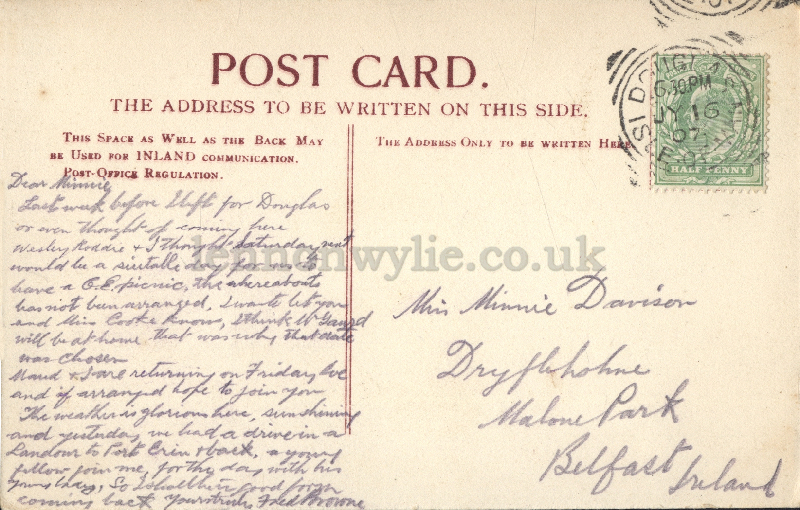 POST CARD.
THE ADDRESS TO BE WRITTEN ON THIS SIDE.
THIS SPACE AS WELL AS THE BACK MAY
BE USED FOR INLAND COMMUNICATION.
POST-OFFICE REGULATION.
THE ADDRESS ONLY TO BE WRITTEN HERE
DOUGLAS
6.30PM
JY 16
07
HALF PENNY
lennonwylie.co.uk
Dear Minnie
Last week before I left for Douglas
or even thought of coming here
Wesley Roddie & I thought Saturday next
would be a suitable day for us to
have a C.E. picnic, the whereabouts
has not been arranged, I want to let you
and Miss Cooke know, I think W
will be at home that was why that date
was chosen
Maud & I are returning on Friday
and if arranged hope to join you
The weather is glorious here, sun shining
and yesterday we had a drive in a
Landour to Port Erin & back, a young
fellow join me, for the day with his
So I shall be in good form
coming back Yours truly Fred Browne
Miss Minnie Davison
Dryfleholme
Malone Park
Belfast Ireland